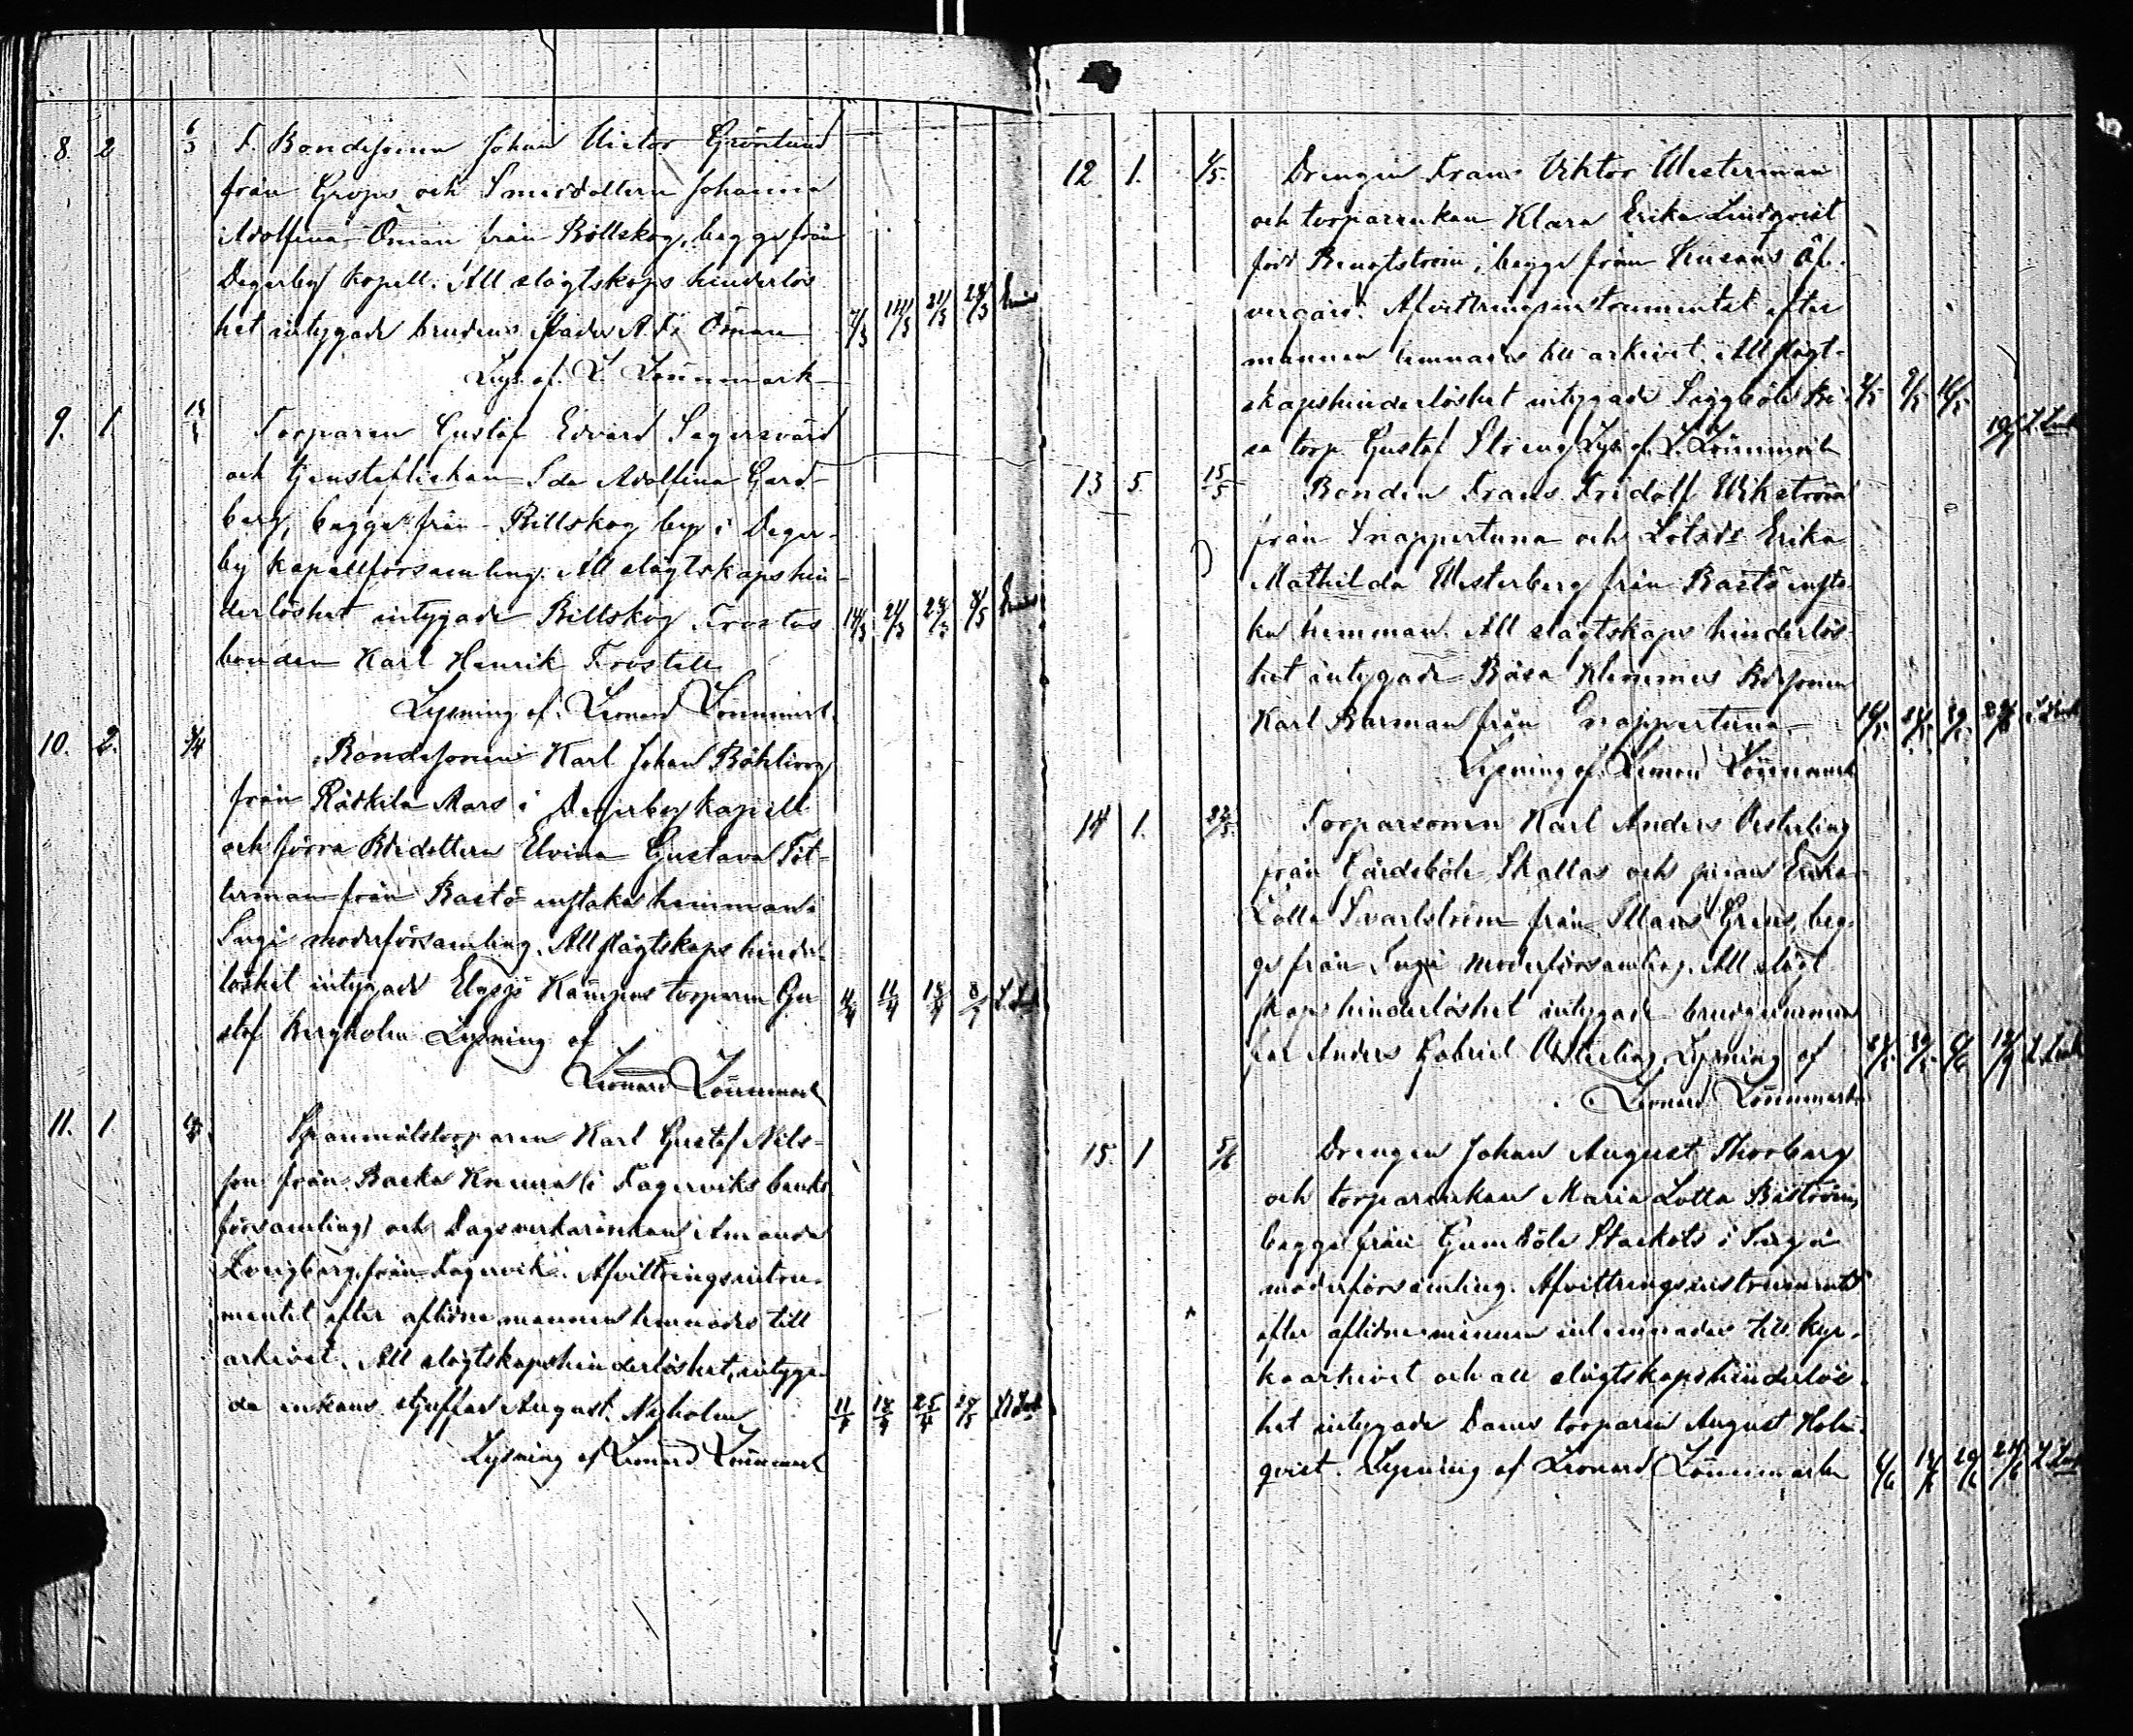 8. 2 6/3 F. Bondesonen Johan Victor Grönlund
från Grops och Smeddottern Johanna
Adolfina Öman frånBöllskog, begge från
Degerby kapell. All slägtskaps hinderlös
het intygade brudens fader A. F. Öman 7/3 14/3 21/3 28/3
Lys. af L. Lönnmark
9. 1. 13/3 Torparen Gustaf Edvard Segersvärd
och tjensteflickan Ida Adolfina Gard-
berg, begge från Billskog by i Deger-
by kapellförsamling. All slägtskapshin-
derlöshet intygade Billskog Frostas 14/3 21/3 28/3
bonden Karl Henrik Frostell
Lysning af Leonard Lönnmark
10. 2. 3/4 Bondesonen Karl Johan Böhling
från Rådkila Mars i Degerby kapell
och förra Bdedottern Elvina Gustava Töt-
terman från Bastö enstaka hemman i
Ingå moderförsamling. All slägtskaps hinder-
löshet intygade torparen Gu 4/4 11/4 18/4
staf Bergholm Lysning af
Leonard Lönnmark
11. 1. Spanmålstorparen Karl Gustaf Nils-
son från Backa Knuus (i Fagerviks bruks
församling) och Dagsverkarenkan Amanda
Ljungberg från Fagervik. Afvittringsinstru-
mentet efter aflidne mannen lemnades till
arkivet. All slägtskapshinderlöshet intyga-
de enkans styffar August Nyholm 11/4 18/4 25/4
Lysning af Leonard Lönnmark
12 1. 1/5. Drengen Frans Viktor Westerman
och torparenkan Klara Erika Lindqvist
född Bengtström, begge från Knuans Öf-
vergård. Afvittringsinstrumentet efter
mannen lemnades till arkivet. All slägt-
skapshinderlöshet intygade Siggböle 2/5 9/5 16/5
torp. Gustaf Lys. af L. Lönnmark
13 5. 15/5 Bonden Frans Fridolf Wikström
från Snappertuna och Erika
Mathilda Westerberg från Bastö ensta-
ka hemman. All slägtskaps hinderlös-
het intygade Båsa Klemmus Bdesonen
Karl Barman från Snappertuna 16/5
Lysning af Leonard Lönnmark
14 1. 22/5. Torparsonen Karl Anders Österling
från Färdsböle Skallas och pigan Erika
Lotta Svartström från Grens, beg-
ge från Ingå moderförsamling. All slägt
skaps hinderlöshet intygade brudgummens
far Anders Gabriel Österling Lysning af
Leonard Lönnmark
15. 1 5/6 Drengen Johan August Thorberg
och torparenkan Maria Lotta Båström,
begge från Gumböle Stackots i Ingå
moderförsamling. Afvittringsinstrumentet
efter aflidne mannen inlemnades till kyr-
koarkivet och all slägtskapshinderlös-
het intygade Dams torparen August Holm-
qvist. Lysning af Leonard Lönnmark 6/6